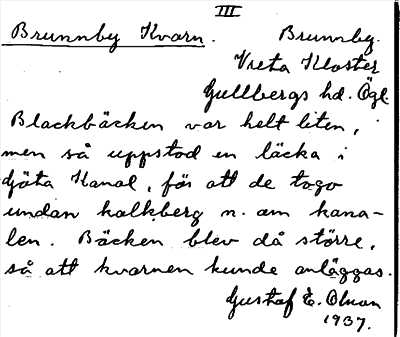 III
Brunnby Kvarn. Brunnby.
Vreta Kloster
Gullbergs hd. Ögl.
Blackbäcken var helt liten,
men så uppstod en läcka i
Göta Kanal, för att de togo
undan kalkberg n. om kana-
len. Bäcken blev då större,
så att kvarnen kunde anläggas.
Gustaf E. Olson
1937.